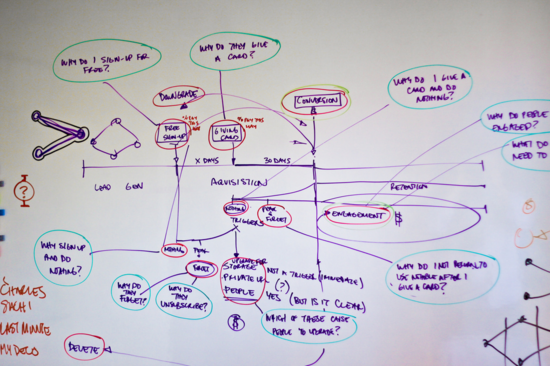 WHY DO I SIGN-UP FOR
FREE?
WHY DO THEY GIVE
A CARD?
WHY DO I GIVE A
CARD AND DO
NOTHING?
WHY DO PEOPLE
ENGAGED?
WHAT DO
NEED TO
DOWNGRADE
CONVERSION
FREE
SIGN-UP
GIVING
CARD
X DAYS
30 DAYS
?
LEAD GEN
AQUISITION
RETENTION
FORGET
ENGAGEMENT
$
TRIGGERS
WHY SIGN UP
AND DO
NOTHING?
WHY DO
THEY
FORGET?
WHY DO
THEY
UNSUBSCRIBE?
STORAGE
PRIVATE U
PEOPLE
$
NOT A TRIGGER (IMMEDIATE)
(?)
YES (BUT IS IT CLEAR)
WHICH OF THOSE CAUSE
PEOPLE TO UPGRADE?
WHY DO I NOT
AFTER I
GIVE A CARD?
CHARLES
LAST MINUTE
DELETE